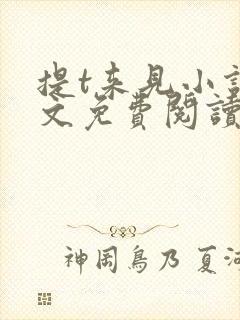 提t来見小說
文免費閱讀
神岡鳥乃 夏河